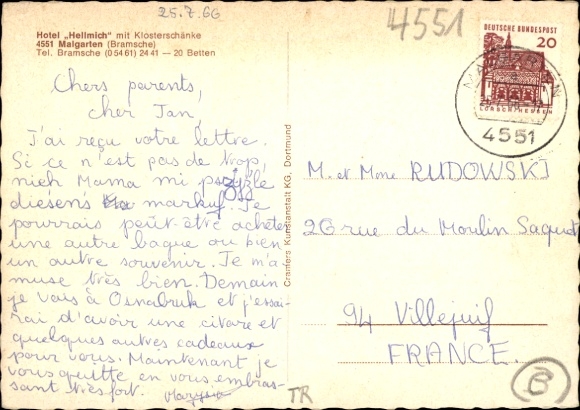 25.7.66
4551
Hotel „Hellmich" mit Klosterschänke
4551 Malgarten (Bramsche)
Tel. Bramsche (0 54 61) 24 41 — 20 Betten
DEUTSCHE BUNDESPOST
20
LORSCH/HESSEN
4551
Chers parents,
cher Jan,
J'ai reçu votre lettre.
Si ce n'est pas de trop,
niech Mama mi przyśle
diesens markuf. Je
pourrais peut-être acheter
une autre bague ou bien
un autre souvenir. Je m'a-
muse très bien. Demain
je vais à Osnabruk et j'essai-
rai d'avoir une citare et
quelques autres cadeaux
pour vous. Maintenant je
vous quitte en vous embras-
sant très fort. Marysia
Cramers Kunstanstalt KG, Dortmund
M. et Mme RUDOWSKI
26 rue du Moulin Saquet
94 Villejuif
FRANCE.
TR
B